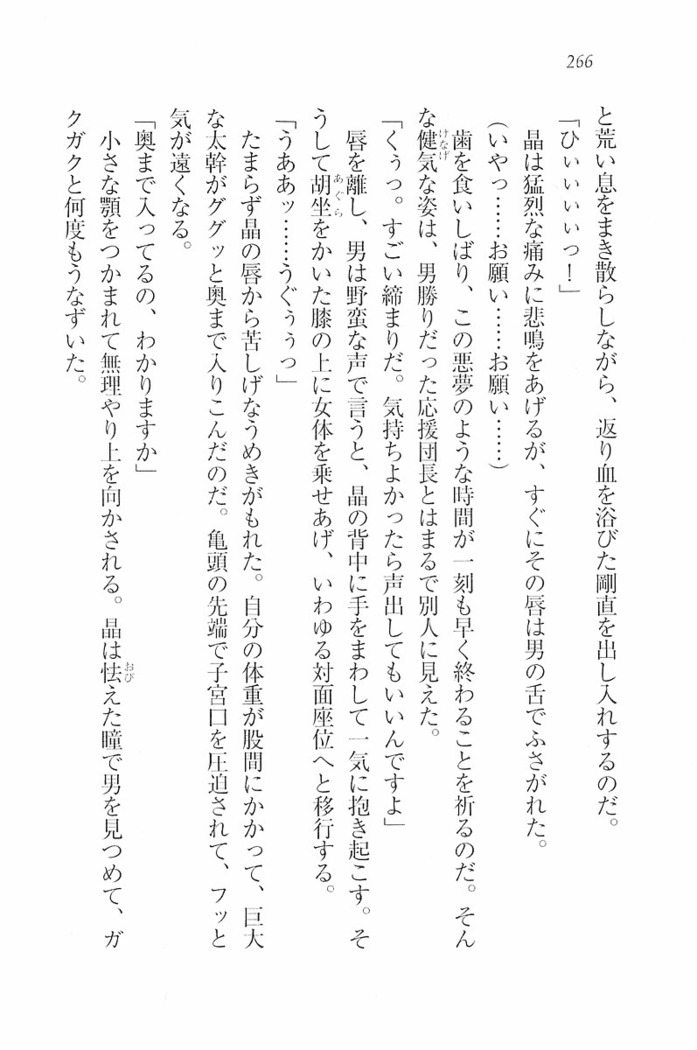 266
と荒い息をまき散らしながら、返り血を浴びた剛直を出し入れするのだ。
「ひぃぃぃぃっ！」
晶は猛烈な痛みに悲鳴をあげるが、すぐにその唇は男の舌でふさがれた。
(いやっ……お願い……お願い……)
歯を食いしばり、この悪夢のような時間が一刻も早く終わることを祈るのだ。そん
な健気な姿は、男勝りだった応援団長とはまるで別人に見えた。
けなげ
「くぅっ。すごい締まりだ。気持ちよかったら声出してもいいんですよ」
唇を離し、男は野蛮な声で言うと、晶の背中に手をまわして一気に抱き起こす。そ
うして胡坐をかいた膝の上に女体を乗せあげ、いわゆる対面座位へと移行する。
あぐら
「うああッ……うぐぅぅっ」
たまらず晶の唇から苦しげなうめきがもれた。自分の体重が股間にかかって、巨大
な太幹がググッと奥まで入りこんだのだ。亀頭の先端で子宮口を圧迫されて、フッと
気が遠くなる。
「奥まで入ってるの、わかりますか」
小さな顎をつかまれて無理やり上を向かされる。晶は怯えた瞳で男を見つめて、ガ
おび
クガクと何度もうなずいた。